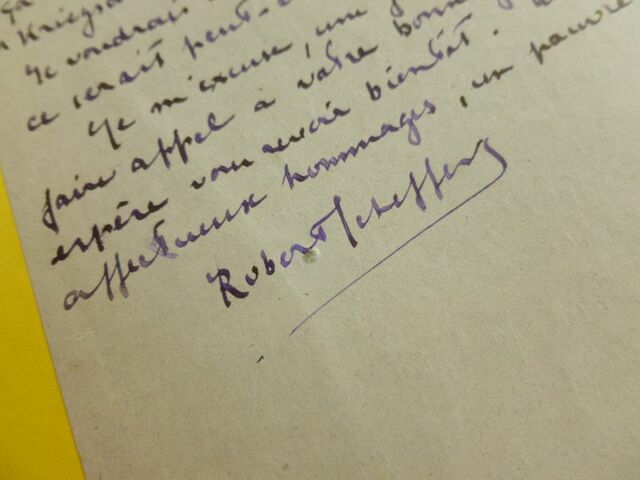 ça
Je voudrais
ce serait peut-
Je m'excuse, une
faire appel a votre bonne
espère vous revoir bientôt.
affectueux hommages, un pauvre
Robert Scheffer